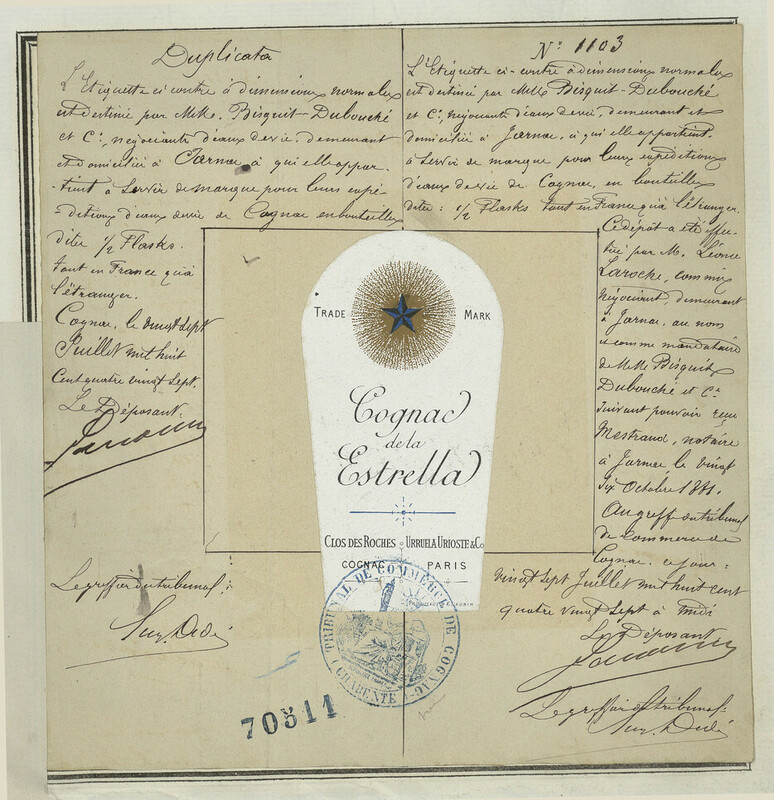 Duplicata
L'Etiquette ci-contre à dimensions normales
est destinée par MM. Bisquit-Dubouché
et Cie, négociants d'eaux de vie, demeurant
et domiciliés à Jarnac, à qui elle appar-
-tient à servir de marque pour leurs expé-
-ditions d'eaux de vie de Cognac en bouteilles
dites 1/2 Flasks.
tant en France qu'à
l'étranger.
Cognac, le vingt sept
Juillet mil huit
Cent quatre vingt sept.
Le Déposant
Le greffier du tribunal:
No 1103
L'Etiquette ci-contre à dimensions normales
est destinée par MM. Bisquit-Dubouché
et Cie, négociants d'eaux de vie, demeurant et
domiciliés à Jarnac, à qui elle appartient
à servir de marque pour leurs expéditions
d'eaux de vie de Cognac, en bouteilles
dites: 1/2 Flasks tant en France qu'à l'étranger.
Ce dépôt a été effec-
tué par M. Léonce
Laroche, commis
négociant, demeurant
à Jarnac, au nom
et comme mandataire
de MM. Bisquit
Dubouché et Cie
suivant pouvoir reçu
Mestraud, notaire
à Jarnac le vingt
six Octobre 1881.
Au greffe du tribunal
de Commerce de
Cognac, ce jour:
vingt sept Juillet mil huit cent
quatre vingt sept à midi
Le Déposant
Le greffier du tribunal:
TRADE MARK
Cognac
de la
Estrella
CLOS DES ROCHES URRUELA URIOSTE & Co
COGNAC PARIS
TRIBUNAL DE COMMERCE DE COGNAC
(CHARENTE)
70511